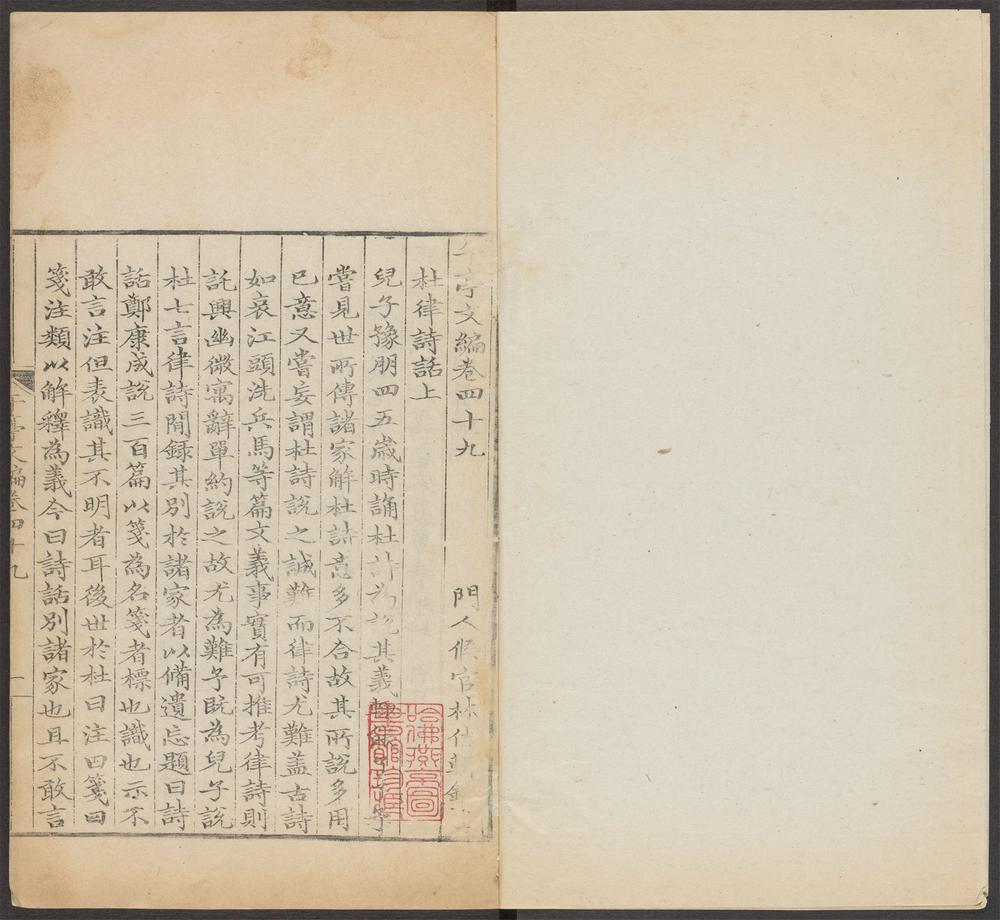 午亭文編卷四十九
門人侯官林佶
杜律詩話上
兒子豫朋四五歲時誦杜詩為說其義
嘗見世所傳諸家解杜詩意多不合故其所說多用
已意又嘗妄謂杜詩說之誠難而律詩尤難蓋古詩
如哀江頭洗兵馬等篇文義事實有可推考律詩則
託興幽微寓辭單約說之故尤為難予既為兒子說
杜七言律詩閒錄其別於諸家者以備遺忘題曰詩
話鄭康成說三百篇以箋為名箋者標也識也示不
敢言注但表識其不明者耳後世於杜曰注曰箋曰
箋注類以解釋為義今曰詩話別諸家也且不敢言
午亭文編卷四十九
一
哈佛燕京圖
書館珍藏